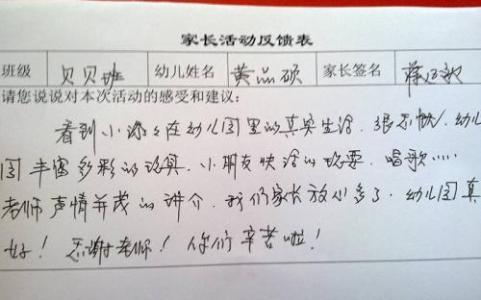 家长活动反馈表
班级 贝贝班 幼儿姓名 黄品硕 家长签名
请您说说对本次活动的感受和建议：
看到小添在幼儿园里的真实生活，很开心！幼儿
园丰富多彩的玩具，小朋友快活的玩耍，唱歌……
老师声情并茂的讲介，我们家长放心多了，幼儿园真
好！感谢老师！你们辛苦啦！